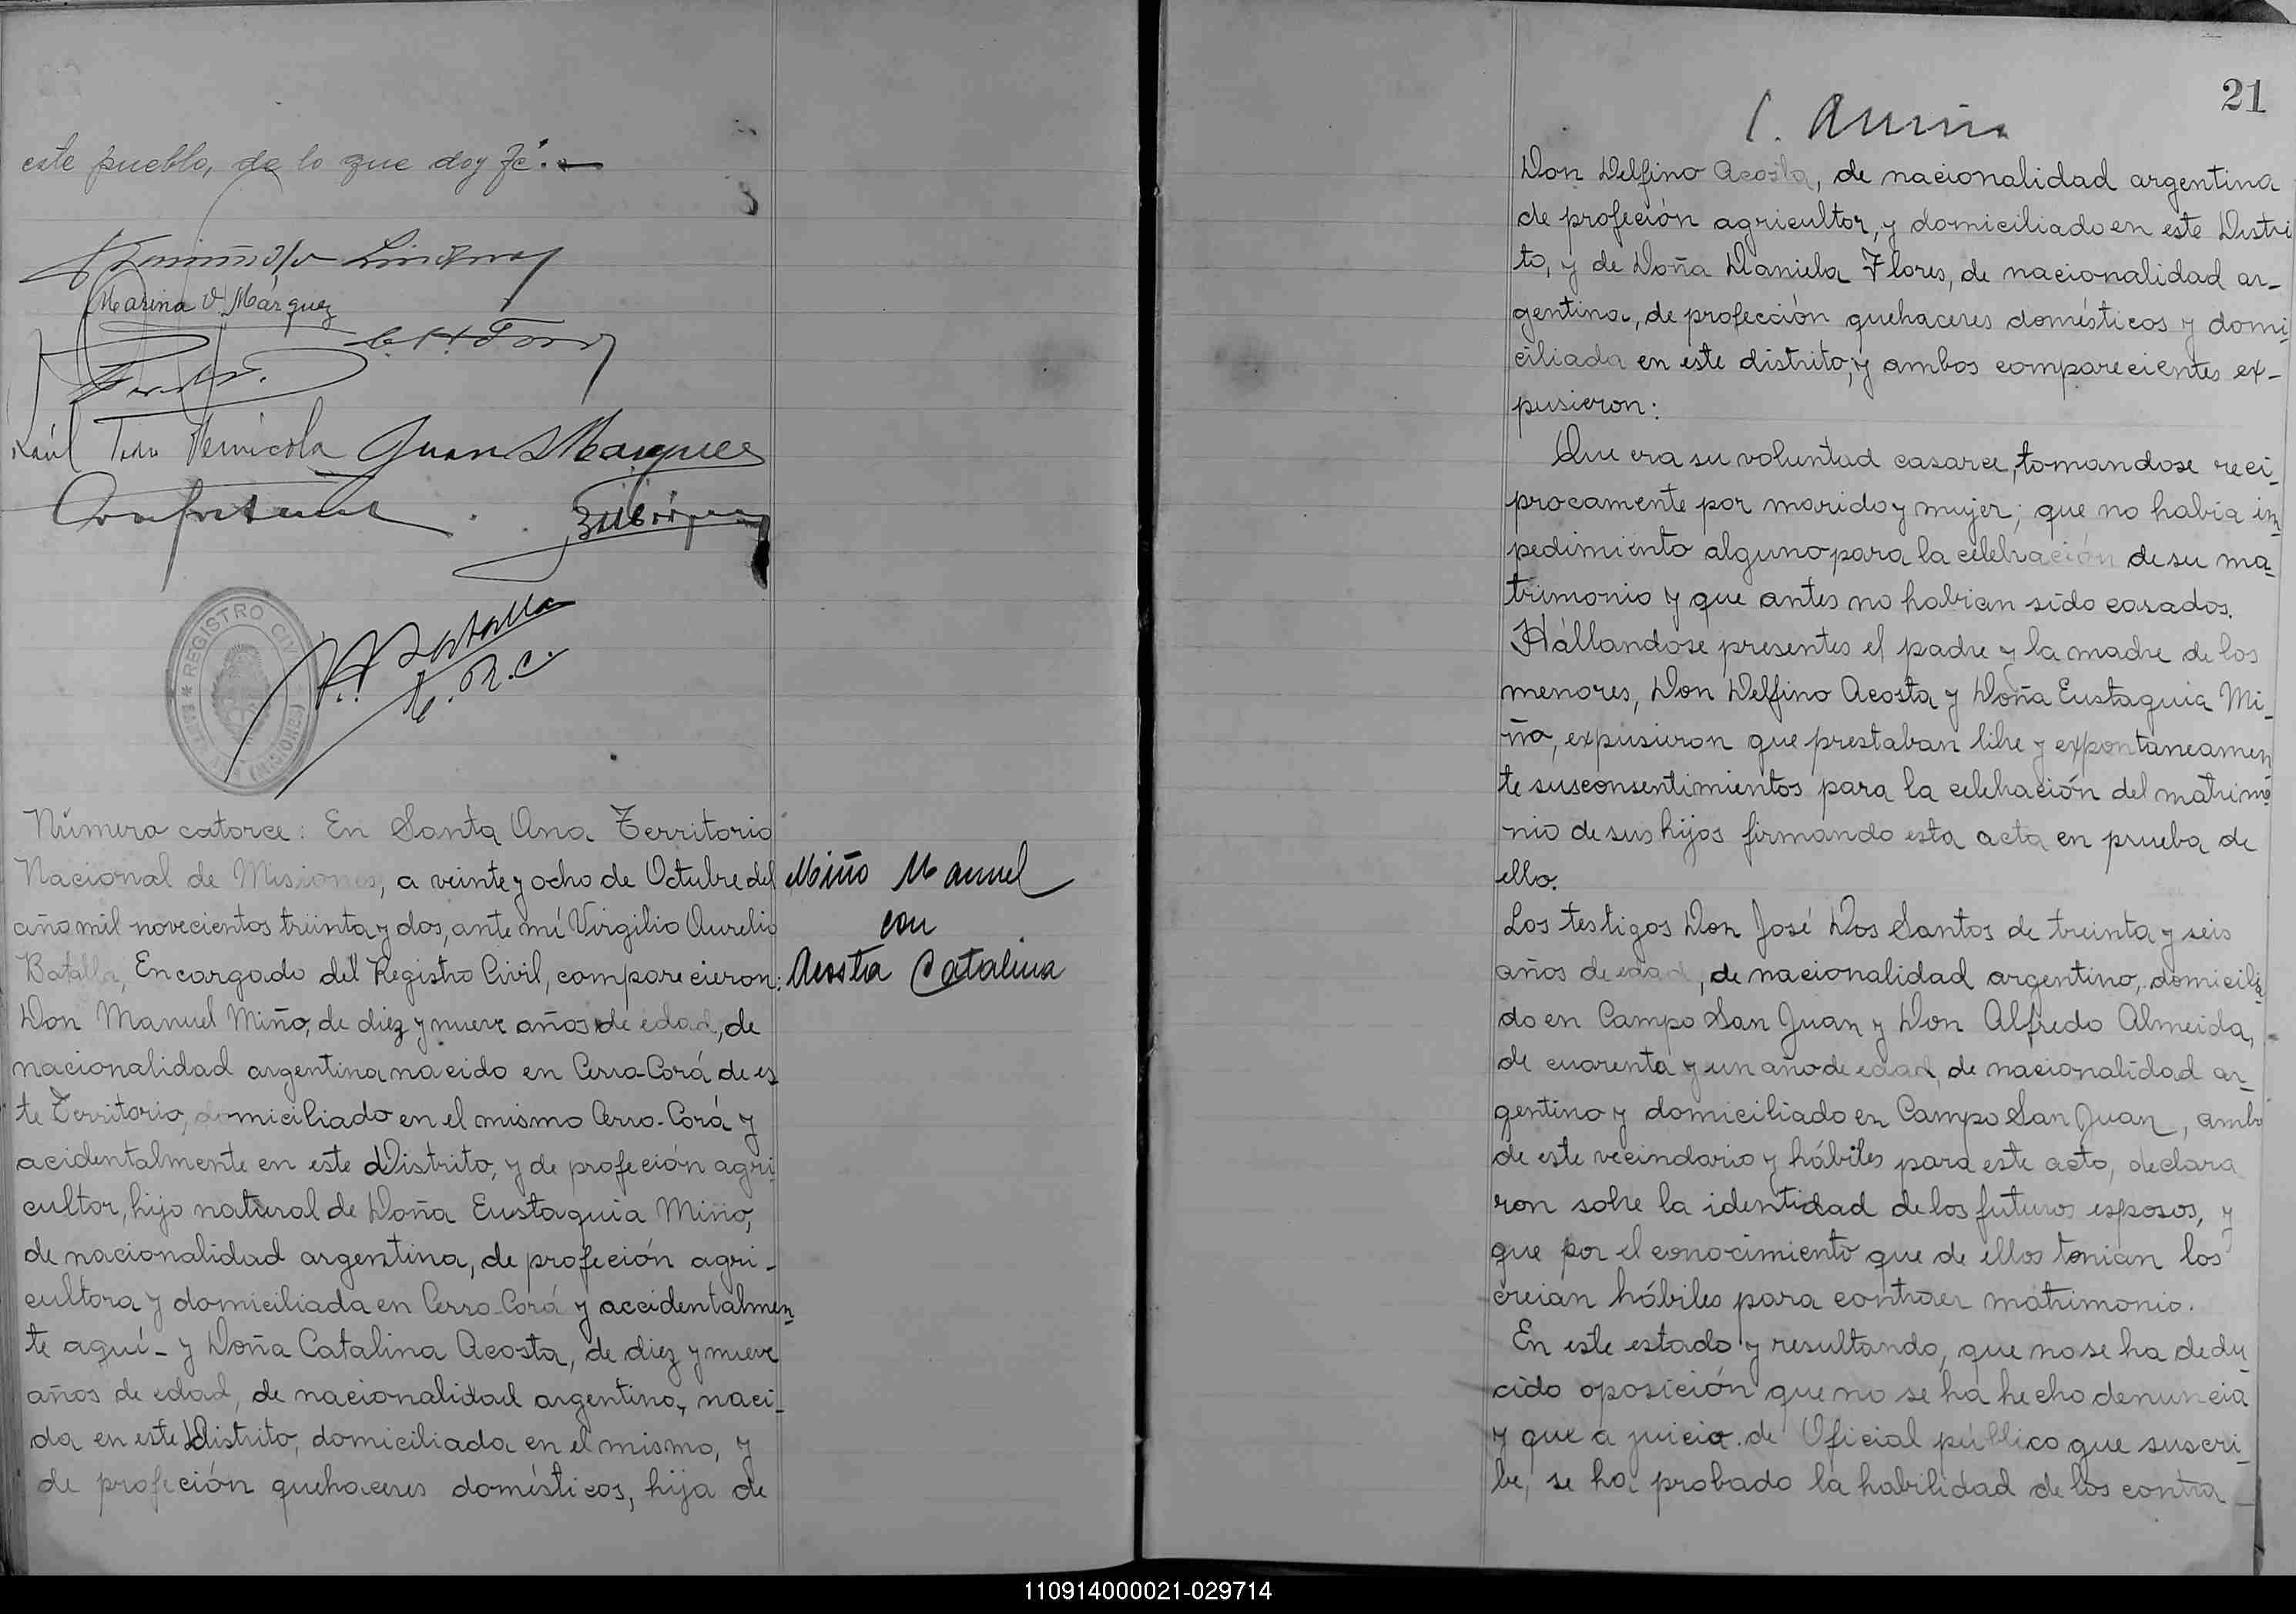 este pueblo, de lo que doy fé.—
Marina V. Márquez
Raúl
Juan Marquez
REGISTRO CIVIL
SANTA ANA (MISIONES)
V. A. Batalla
E. R. C.
Número catorce: En Santa Ana Territorio
Nacional de Misiones, a veinte y ocho de Octubre del
año mil novecientos treinta y dos, ante mí Virgilio Aurelio
Batalla, Encargado del Registro Civil, comparecieron:
Don Manuel Miño, de diez y nueve años de edad, de
nacionalidad argentina nacido en Cerro-Corá de es
te Territorio, domiciliado en el mismo Cerro-Corá y
acidentalmente en este Distrito, y de profeción agri
cultor, hijo natural de Doña Eustaquia Miño,
de nacionalidad argentina, de profeción agri-
cultora y domiciliada en Cerro-Corá y accidentalmen
te aquí- y Doña Catalina Acosta, de diez y nueve
años de edad, de nacionalidad argentina, naci-
da en este Distrito, domiciliada en el mismo, y
de profeción quehaceres domésticos, hija de
Miño Manuel
con
Acosta Catalina
21
Don Delfino Acosta, de nacionalidad argentina
de profeción agricultor, y domiciliado en este Distri
to, y de Doña Daniela Flores, de nacionalidad ar-
gentina, de profección quehaceres domésticos y domi
ciliada en este distrito, y ambos comparecientes ex-
pusieron:
Que era su voluntad casarce, tomandose reci-
procamente por marido y mujer; que no habia im
pedimiento alguno para la celebración de su ma-
trimonio y que antes no habian sido casados.
Hállandose presentes el padre y la madre de los
menores, Don Delfino Acosta y Doña Eustaquia Mi-
ño, expusieron que prestaban libre y expontaneamen
te sus consentimientos para la celebración del matrimo
nio de sus hijos firmando esta acta en prueba de
ello.
Los testigos Don José Dos Santos de treinta y seis
años de edad, de nacionalidad argentino, domicilia
do en Campo San Juan y Don Alfredo Almeida,
de cuarenta y un año de edad, de nacionalidad ar-
gentino y domiciliado en Campo San Juan, ambo
de este vecindario y hábiles para este acto, declara
ron sobre la identidad de los futuros esposos, y
que por el conocimiento que de ellos tenian los
creian hábiles para contraer matrimonio.
En este estado y resultando, que no se ha dedu
cido oposición que no se ha hecho denuncia
y que a juicio de Oficial público que suscri-
be, se ha probado la habilidad de los contra-
110914000021-029714